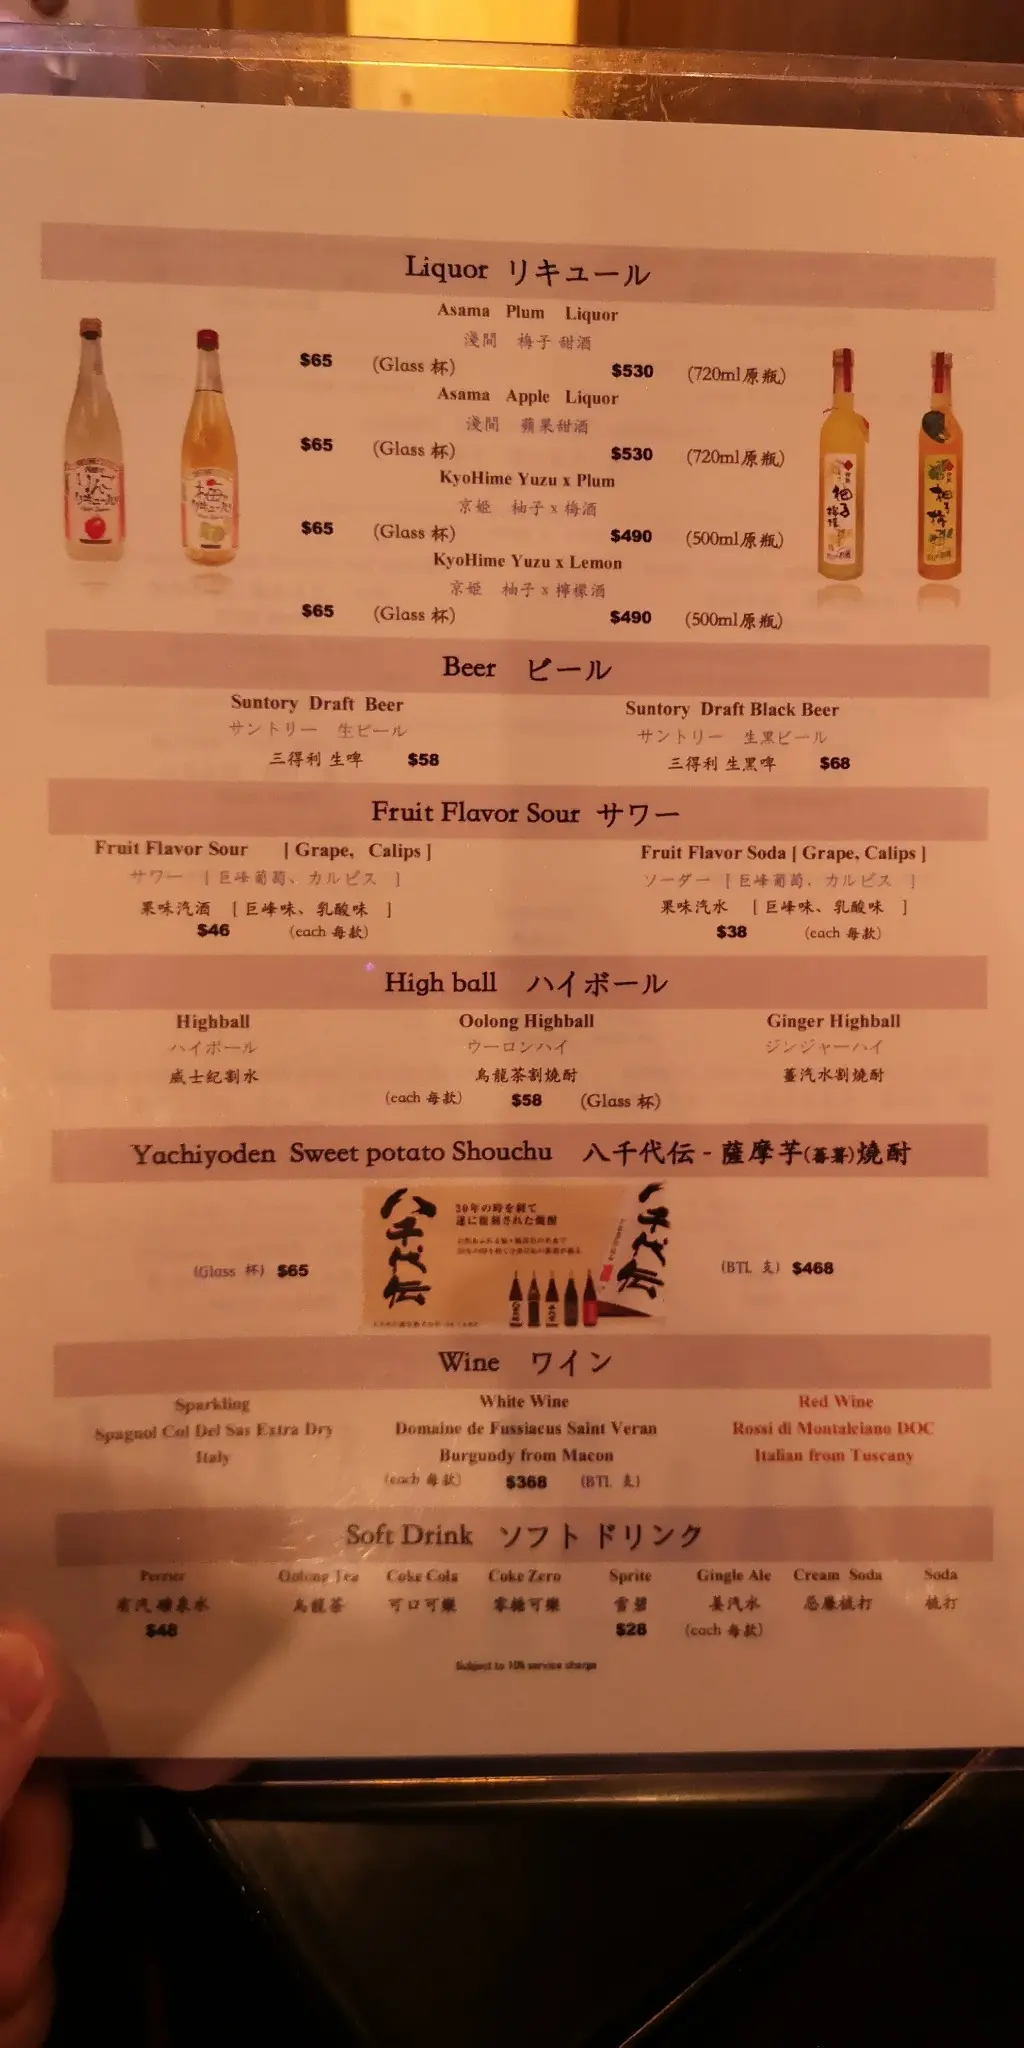 Liquor リキュール
Asama Plum Liquor
淺間 梅子甜酒
$65 (Glass 杯) $530 (720ml原瓶)
Asama Apple Liquor
淺間 蘋果甜酒
$65 (Glass 杯) $530 (720ml原瓶)
KyoHime Yuzu x Plum
京姫 柚子 x 梅酒
$65 (Glass 杯) $490 (500ml原瓶)
KyoHime Yuzu x Lemon
京姫 柚子 x 檸檬酒
$65 (Glass 杯) $490 (500ml原瓶)
Beer ビール
Suntory Draft Beer Suntory Draft Black Beer
サントリー 生ビール サントリー 生黒ビール
三得利 生啤 $58 三得利 生黑啤 $68
Fruit Flavor Sour サワー
Fruit Flavor Sour [ Grape, Calips ] Fruit Flavor Soda [ Grape, Calips ]
サワー [ 巨峰葡萄、カルピス ] ソーダー [ 巨峰葡萄、カルピス ]
果味汽酒 [ 巨峰味、乳酸味 ] 果味汽水 [ 巨峰味、乳酸味 ]
$46 (each 每款) $38 (each 每款)
High ball ハイボール
Highball Oolong Highball Ginger Highball
ハイボール ウーロンハイ ジンジャーハイ
威士紀割水 烏龍茶割燒酎 薑汽水割燒酎
(each 每款) $58 (Glass 杯)
Yachiyoden Sweet potato Shouchu 八千代伝 - 薩摩芋(蕃薯)燒酎
八千代伝
30年の時を経て
遂に復刻された焼酎
八千代伝
(Glass 杯) $65 (BTL 支) $468
Wine ワイン
Sparkling White Wine Red Wine
Spagnol Col Del Sas Extra Dry Domaine de Fussiacus Saint Veran Rossi di Montalciano DOC
Italy Burgundy from Macon Italian from Tuscany
(each 每款) $368 (BTL 支)
Soft Drink ソフトドリンク
Perrier Oolong Tea Coke Cola Coke Zero Sprite Gingle Ale Cream Soda Soda
有汽礦泉水 烏龍茶 可口可樂 零糖可樂 雪碧 姜汽水 忌廉梳打 梳打
$48 $28 (each 每款)
Subject to 10% service charge